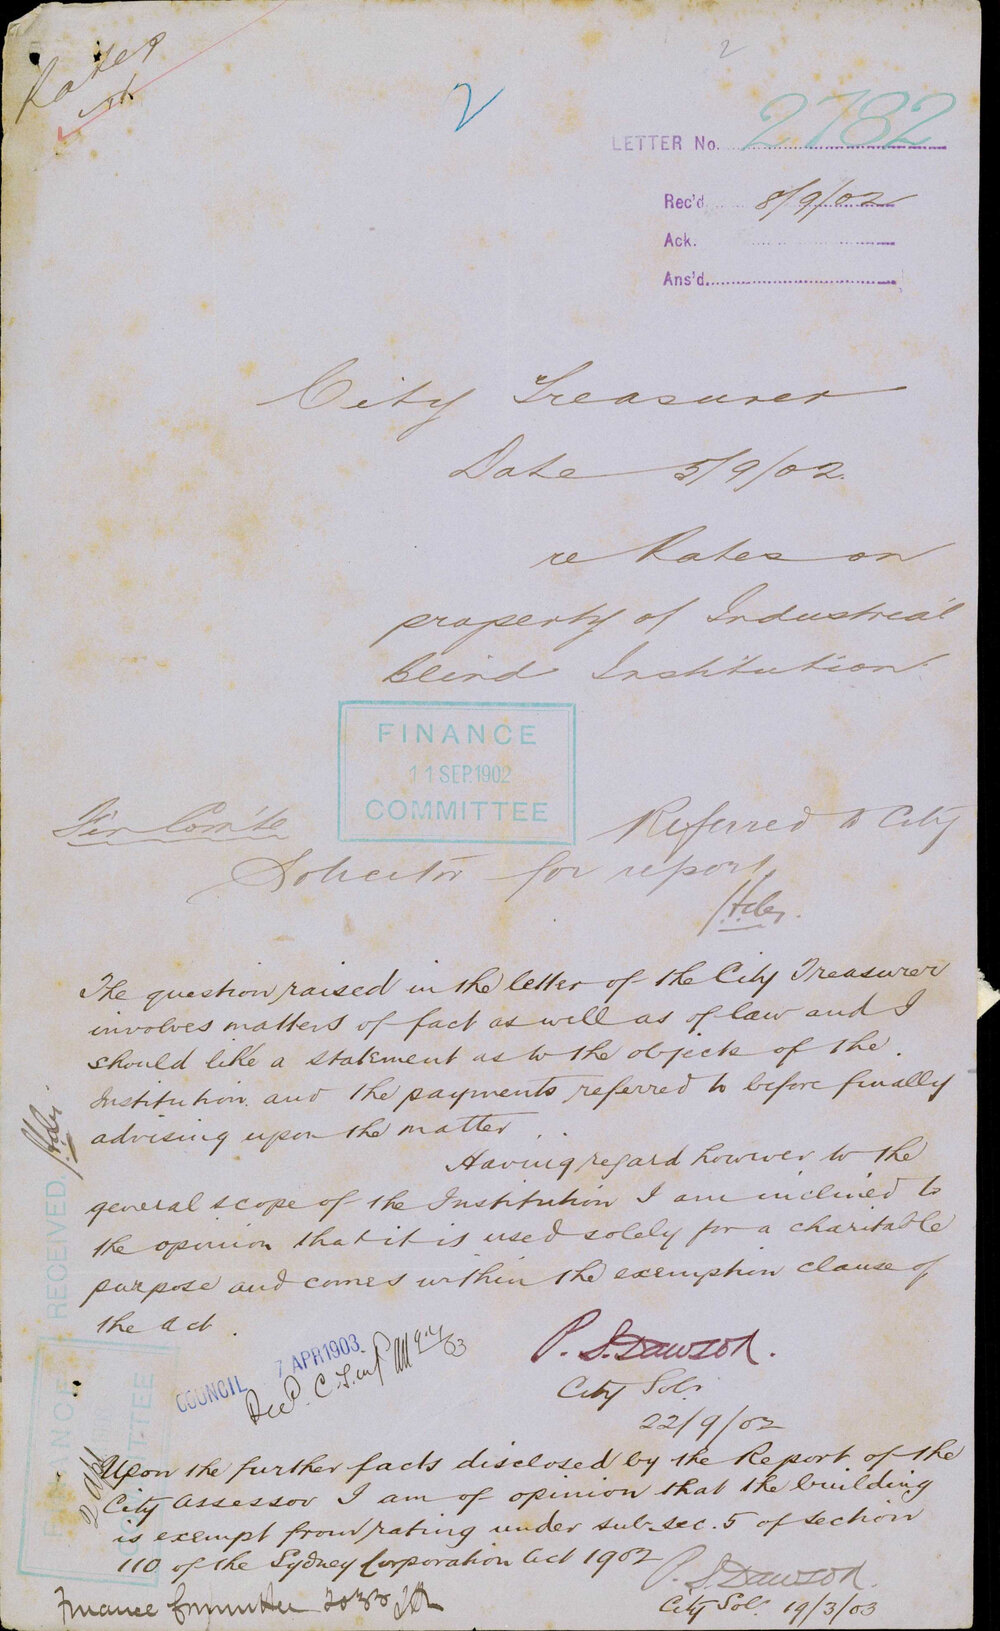 Rates
2
2
LETTER No. 2782
Rec'd. 8/9/02
Ack.
Ans'd.
City Treasurer
Date 5/9/02.
re Rates on
property of Industrial
Blind Institution
FINANCE
11 SEP.1902
COMMITTEE
Fin Com'tee Referred to City
Solicitor for report
The question raised in the letter of the City Treasurer
involves matters of fact as well as of law and I
should like a statement as to the objects of the
Institution and the payments referred to before finally
advising upon the matter
Having regard however to the
general scope of the Institution I am inclined to
the opinion that it is used solely for a charitable
purpose and comes within the exemption clause of
the act.
P. S. Dawson.
City Solr.
22/9/02
RECEIVED.
FINANCE
COMMITTEE
COUNCIL 7 APR 1903.
Upon the further facts disclosed by the Report of the
City Assessor I am of opinion that the building
is exempt from rating under sub.sec. 5 of section
110 of the Sydney Corporation Act 1902
P. S. Dawson.
City Solr. 19/3/03
Finance Committee